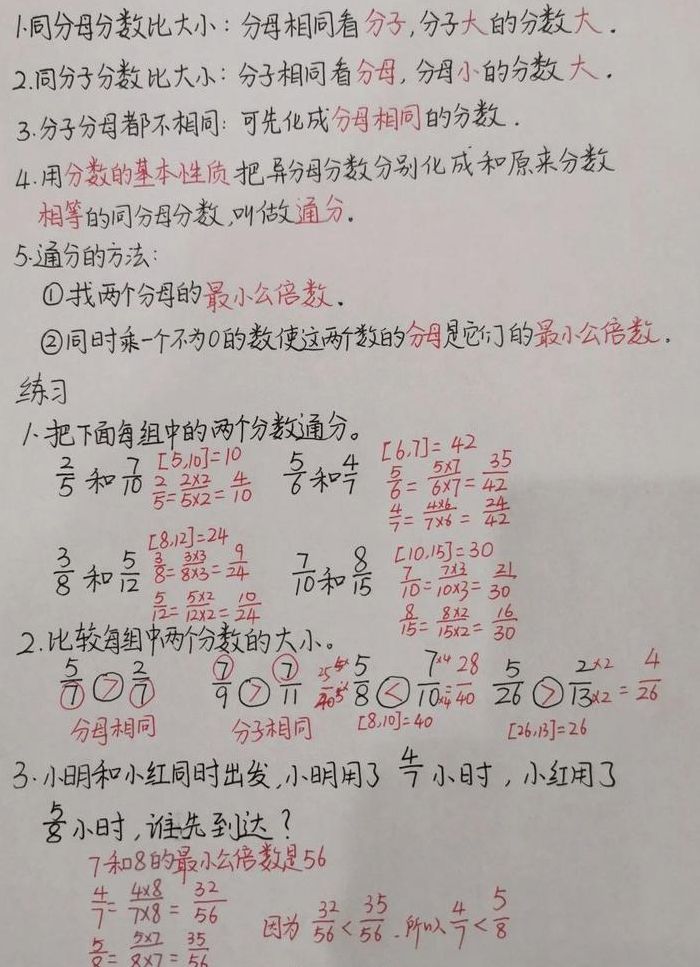 1.同分母分数比大小：分母相同看分子,分子大的分数大.
2.同分子分数比大小：分子相同看分母,分母小的分数大.
3.分子分母都不相同：可先化成分母相同的分数.
4.用分数的基本性质把异分母分数分别化成和原来分数
相等的同分母分数,叫做通分.
5.通分的方法：
①找两个分母的最小公倍数.
②同时乘一个不为0的数使这两个数的分母是它们的最小公倍数.
练习
1.把下面每组中的两个分数通分。
2/5 和 7/10 [5,10]=10
2/5=2×2/5×2=4/10
5/6 和 4/7 [6,7]=42
5/6=5×7/6×7=35/42
4/7=4×6/7×6=24/42
3/8 和 5/12 [8,12]=24
3/8=3×3/8×3=9/24
5/12=5×2/12×2=10/24
7/10 和 8/15 [10,15]=30
7/10=7×3/10×3=21/30
8/15=8×2/15×2=16/30
2.比较每组中两个分数的大小。
5/7 > 2/7
分母相同
7/9 > 7/11
分子相同
25/40 5/8 < 7×4/10×4=28/40
[8,10]=40
5/26 > 2×2/13×2=4/26
[26,13]=26
3.小明和小红同时出发,小明用了 4/7 小时，小红用了
5/8 小时,谁先到达？
7和8的最小公倍数是56
4/7=4×8/7×8=32/56
5/8=5×7/8×7=35/56
因为 32/56<35/56 .所以 4/7<5/8